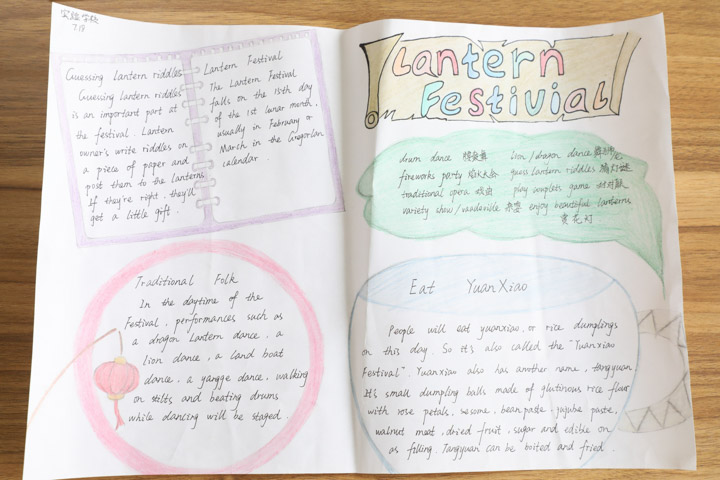 实验学校
718
Guessing Lantern riddles
Guessing Lantern riddles
is an important part of
the festival. Lantern
owner's write riddles on
a piece of paper and
post them to the lanterns.
If they're right, they'll
get a little gift.
Lantern Festival
The Lantern Festival
falls on the 15th day
of the 1st lunar month,
usually in February or
March in the Gregorian
calendar.
Lantern
Festivial
drum dance
lion/dragon dance
fireworks party 焰火大会 guess lantern riddles 猜灯谜
traditional opera 戏曲 play couplets game 对对联
variety show/vaudeville 杂耍 enjoy beautiful lanterns
赏花灯
Traditional Folk
In the daytime of the
Festival, performances such as
a dragon Lantern dance, a
lion dance, a land boat
dance, a yangge dance, walking
on stilts and beating drums
while dancing will be staged.
Eat YuanXiao
People will eat yuanxiao, or rice dumplings
on this day. So it's also called the "Yuanxiao
Festival". Yuanxiao also has another name, tangyuan.
It's small dumpling balls made of glutinous rice flour
with rose petals, sesame, bean paste, jujube paste,
walnut meat, dried fruit, sugar and edible on
as filling. Tangyuan can be boited and fried.